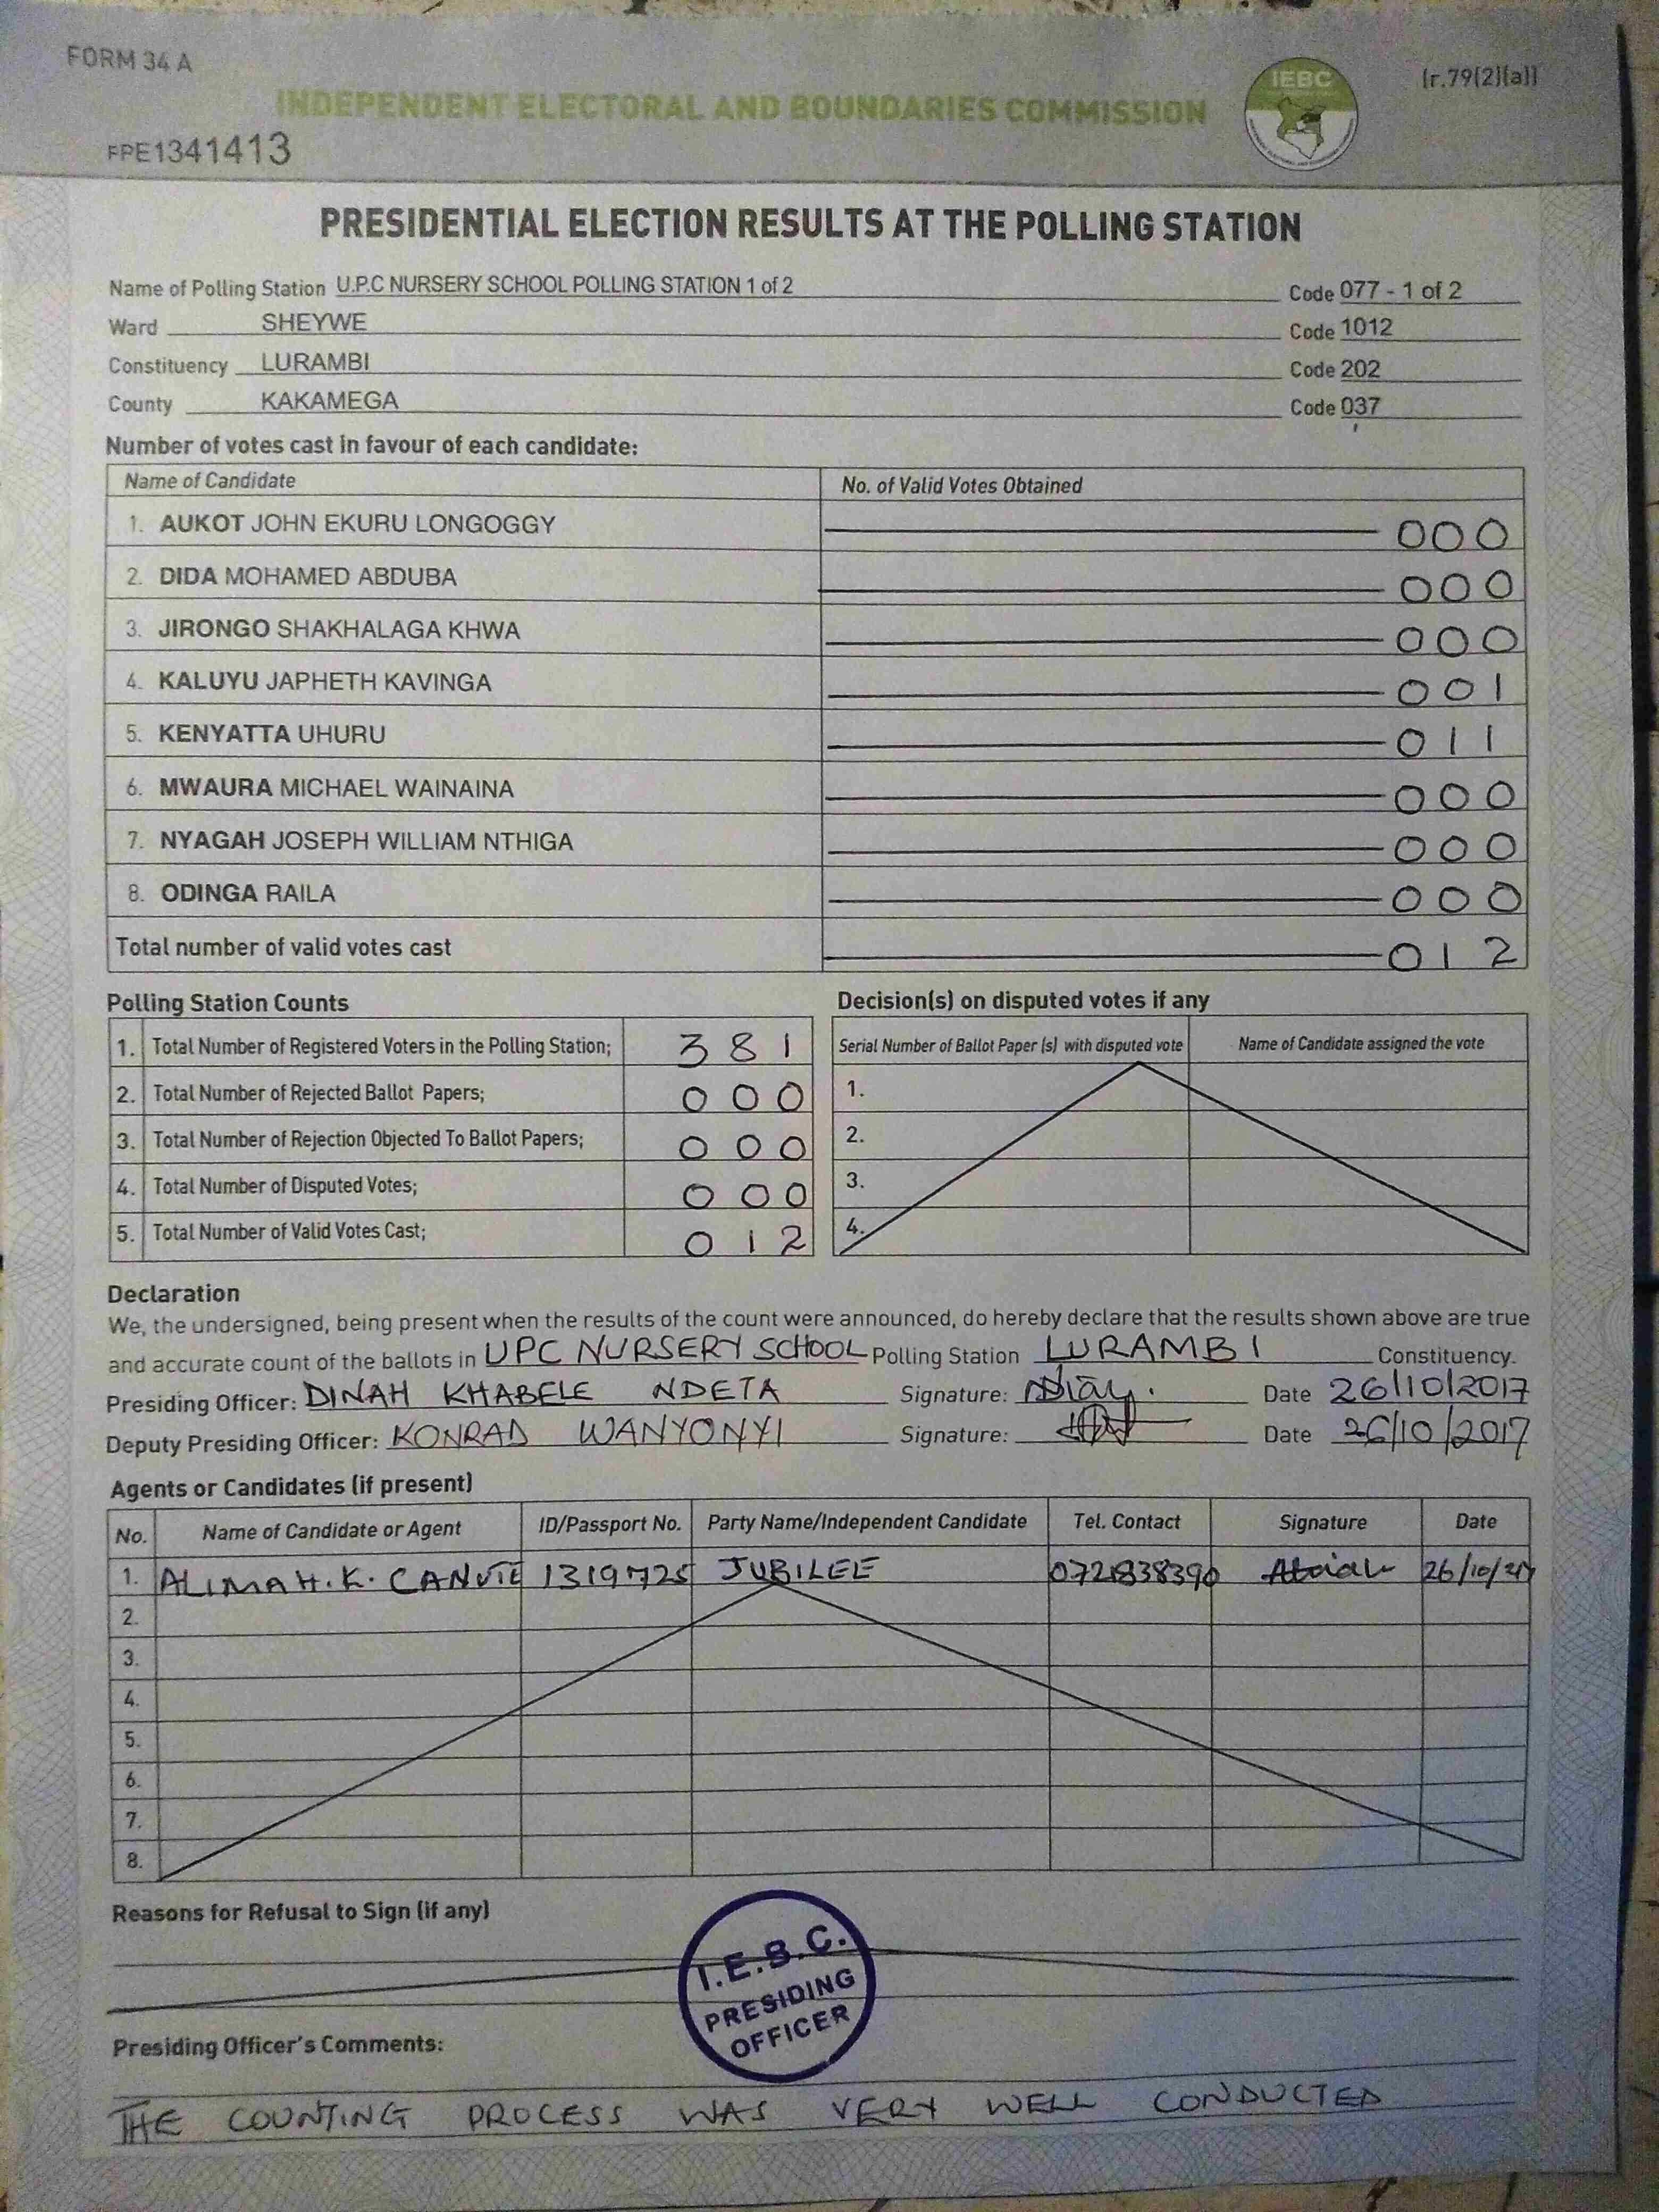 FORM 34 A
IEBC
(r.79(2)(a))
INDEPENDENT ELECTORAL AND BOUNDARIES COMMISSION
FPE1341413
PRESIDENTIAL ELECTION RESULTS AT THE POLLING STATION
Name of Polling Station U.P.C NURSERY SCHOOL POLLING STATION 1 of 2 Code 077 - 1 of 2
Ward SHEYWE Code 1012
Constituency LURAMBI Code 202
County KAKAMEGA Code 037
Number of votes cast in favour of each candidate:
Name of Candidate No. of Valid Votes Obtained
1. AUKOT JOHN EKURU LONGOGGY 000
2. DIDA MOHAMED ABDUBA 000
3. JIRONGO SHAKHALAGA KHWA 000
4. KALUYU JAPHETH KAVINGA 001
5. KENYATTA UHURU 011
6. MWAURA MICHAEL WAINAINA 000
7. NYAGAH JOSEPH WILLIAM NTHIGA 000
8. ODINGA RAILA 000
Total number of valid votes cast 012
Polling Station Counts
1. Total Number of Registered Voters in the Polling Station; 381
2. Total Number of Rejected Ballot Papers; 000
3. Total Number of Rejection Objected To Ballot Papers; 000
4. Total Number of Disputed Votes; 000
5. Total Number of Valid Votes Cast; 012
Decision(s) on disputed votes if any
Serial Number of Ballot Paper (s) with disputed vote Name of Candidate assigned the vote
1.
2.
3.
4.
Declaration
We, the undersigned, being present when the results of the count were announced, do hereby declare that the results shown above are true
and accurate count of the ballots in UPC NURSERY SCHOOL Polling Station LURAMBI Constituency.
Presiding Officer: DINAH KHABELE NDETA Signature: Date 26/10/2017
Deputy Presiding Officer: KONRAD WANYONYI Signature: Date 26/10/2017
Agents or Candidates (if present)
No. Name of Candidate or Agent ID/Passport No. Party Name/Independent Candidate Tel. Contact Signature Date
1. ALIMA H. K. CANUTE 1319725 JUBILEE 0721838390 26/10/
2.
3.
4.
5.
6.
7.
8.
Reasons for Refusal to Sign (if any)
I.E.B.C.
PRESIDING
OFFICER
Presiding Officer's Comments:
THE COUNTING PROCESS WAS VERY WELL CONDUCTED